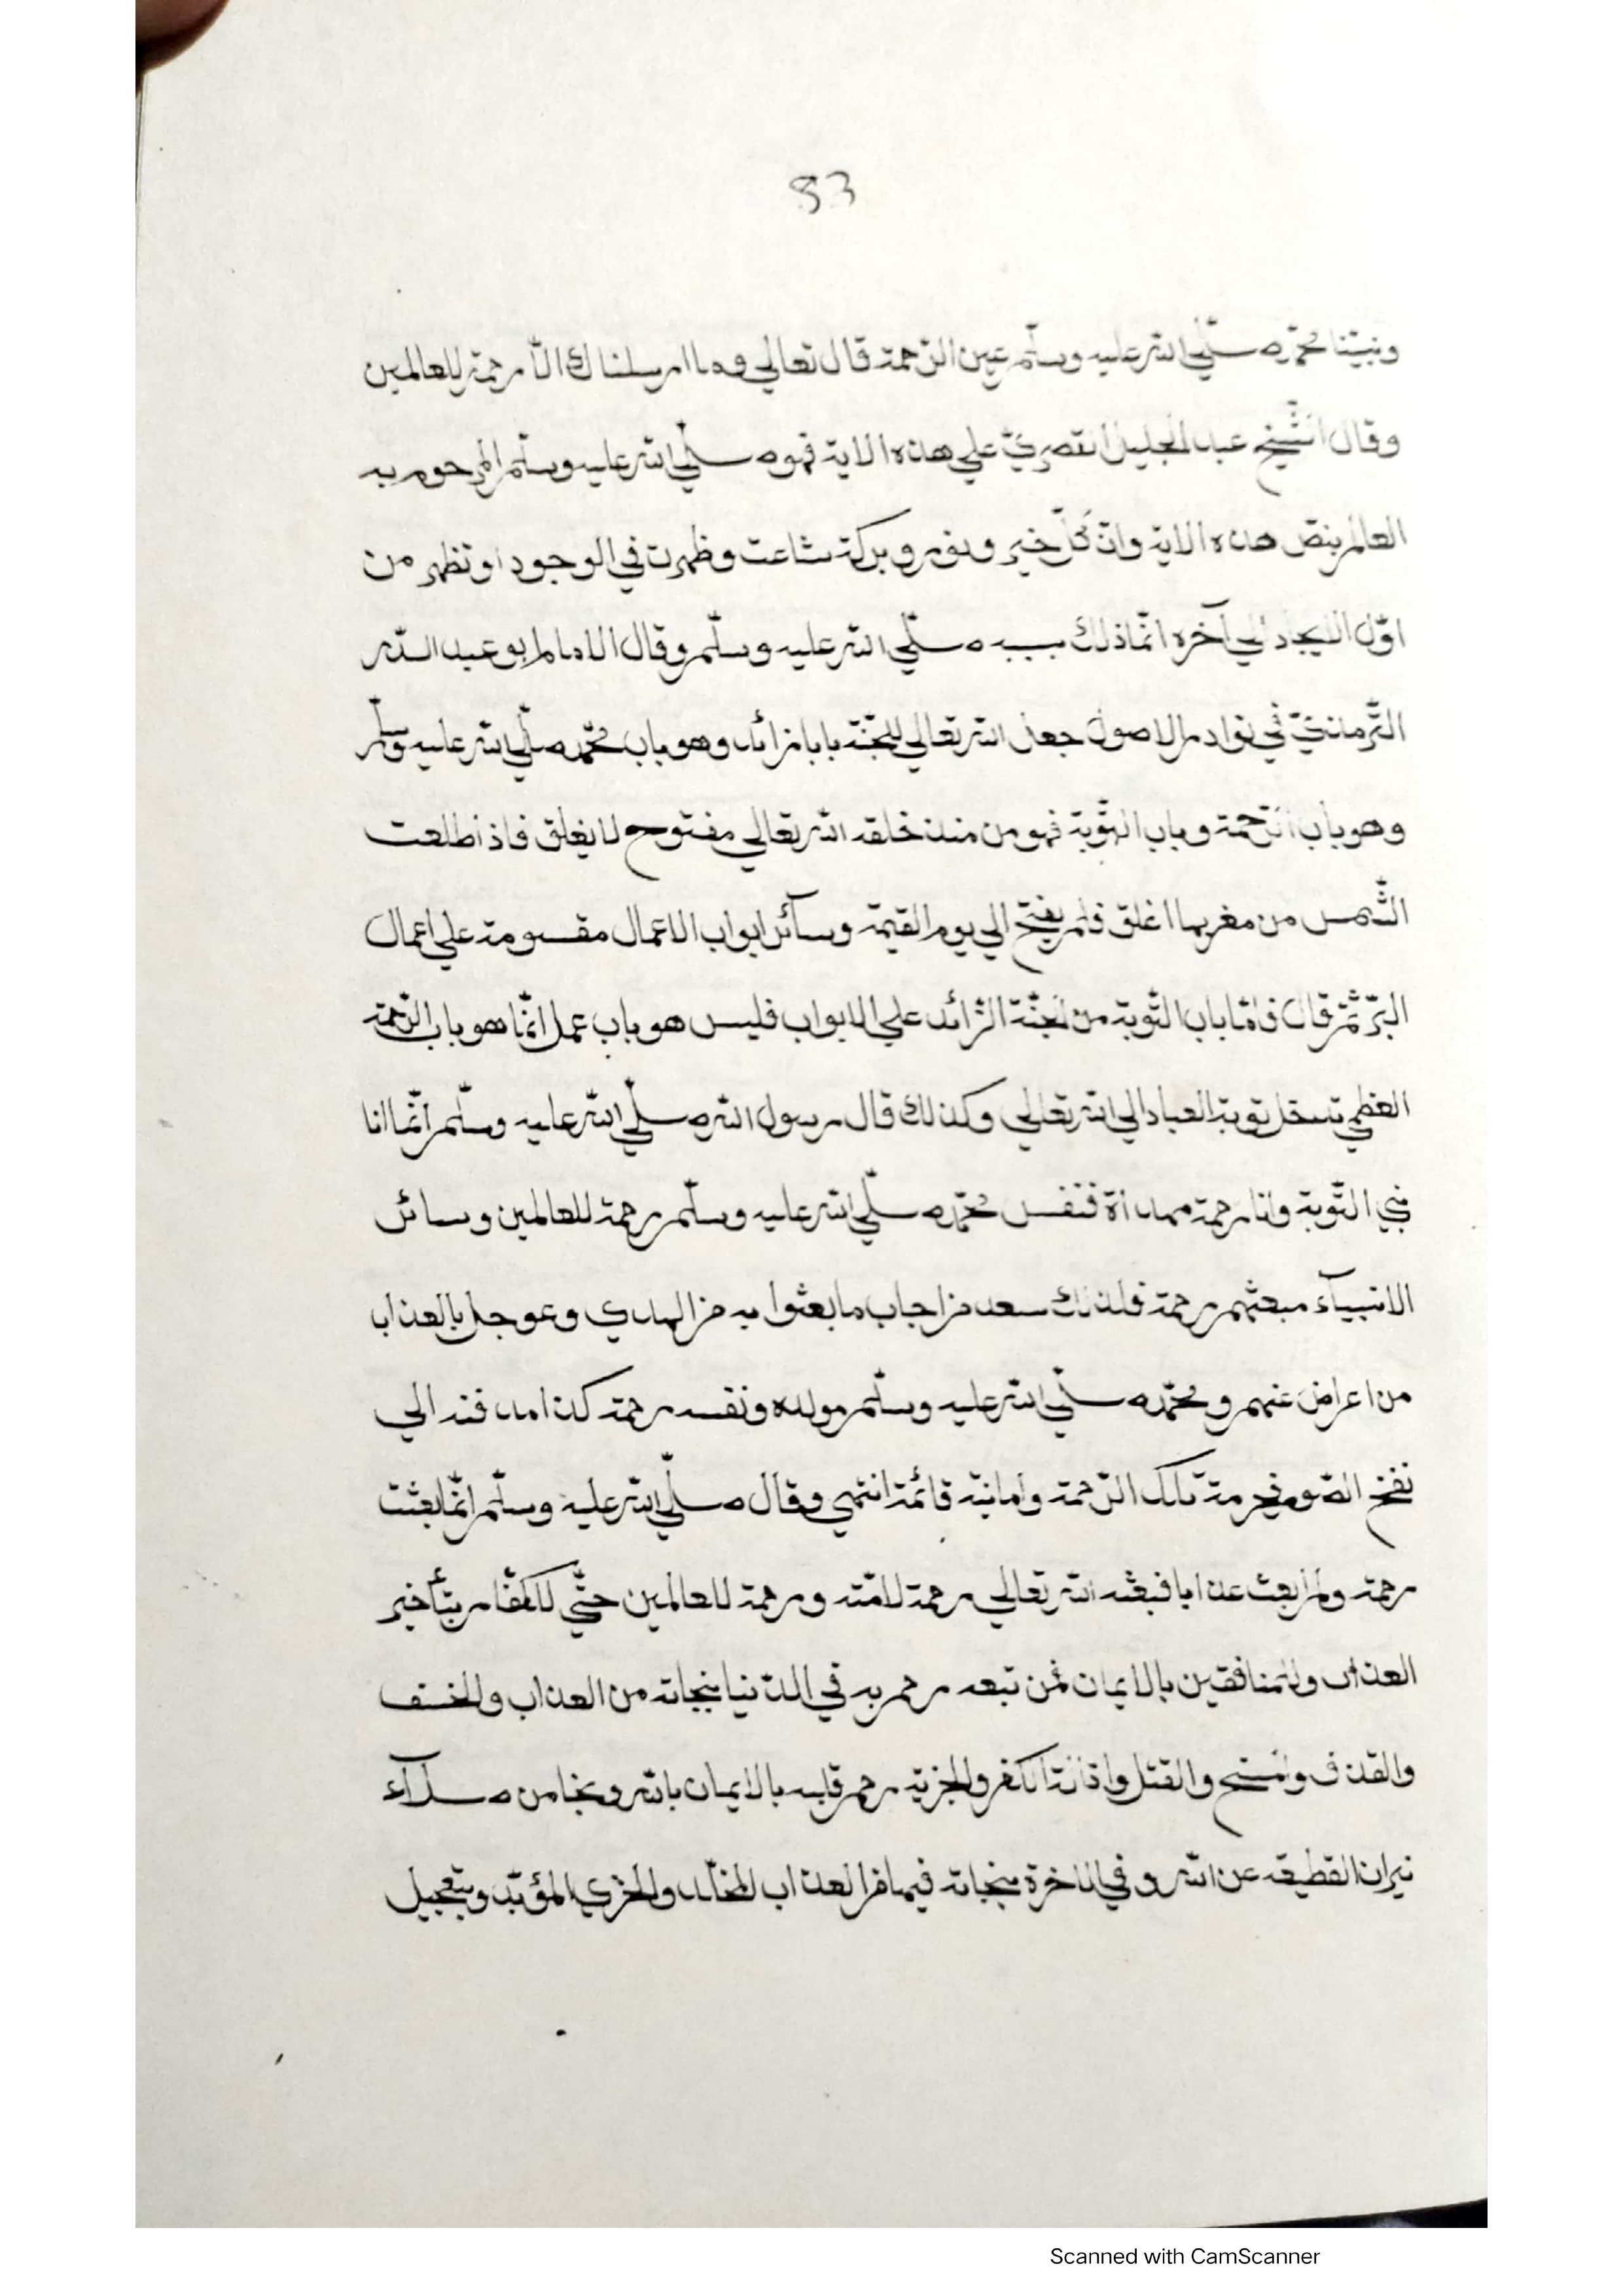 83
ونبيّنا محمّد صلّي الله عليه وسلّم عين الرّحمة قال تعالي وما ارسلناك الّا رحمة للعالمين
وقال الشّيخ عبد الجليل القصريّ علي هذه الاية فهو صلّي الله عليه وسلّم المرحوم به
العالم بنصّ هذه الاية وانّ كلّ خير ونور وبركة شاعت وظهرت في الوجود او تظهر من
اوّل الايجاد الي آخره انّما ذلك بسببه صلّي الله عليه وسلّم وقال الامام ابو عبد اللّه
التّرمذيّ في نوادر الاصول جعل الله تعالي للجنّة بابا زائد وهو باب محمّد صلّي الله عليه وسلّم
وهو باب الرّحمة وباب التّوبة فهو من منذ خلقه الله تعالي مفتوح لا يغلق فاذ اطلعت
الشّمس من مغربها اغلق فلم يفتح الي يوم القيمة وسآئر ابواب الاعمال مقسومة علي اعمال
البرّ ثمّ قال فامّا باب التّوبة من الجنّة الزّائد علي الابواب فليس هو باب عمل انّما هو باب الرّحمة
العظمي تدخل توبة العباد الي الله تعالي وكذلك قال رسول الله صلّي الله عليه وسلّم انّما انا
نبي التّوبة وانا رحمة مهداة فنفس محمّد صلّي الله عليه وسلّم رحمة للعالمين وسائر
الانبيآء مبعثهم رحمة فلذلك سعد من اجاب ما بعثوا به من الهدي وعوجل بالعذاب
من اعراض عنهم ومحمّد صلّي الله عليه وسلّم مولده ونفسه رحمة كذا مدفنه الي
نفخ الصّور فحرمة تلك الرّحمة وامانية قائمة انتهي وقال صلّي الله عليه وسلّم انّما بعثت
رحمة ولم ابعث عذابا فبعثه الله تعالي رحمة لامّته ورحمة للعالمين حتّي للكفّار بتأخير
العذاب وللمنافقين بالايمان فمن تبعه رحم به في الدّنيا بنجاته من العذاب والخسف
والقذف والمسخ والقتل واذلّة الكفر والجزية رحم قلبه بالايمان بالله ونجا من صلآء
نيران القطيعة عن الله وفي الاخرة بنجاته فيها من العذاب المخلّد والخزي المؤبّد وبتعجيل
Scanned with CamScanner